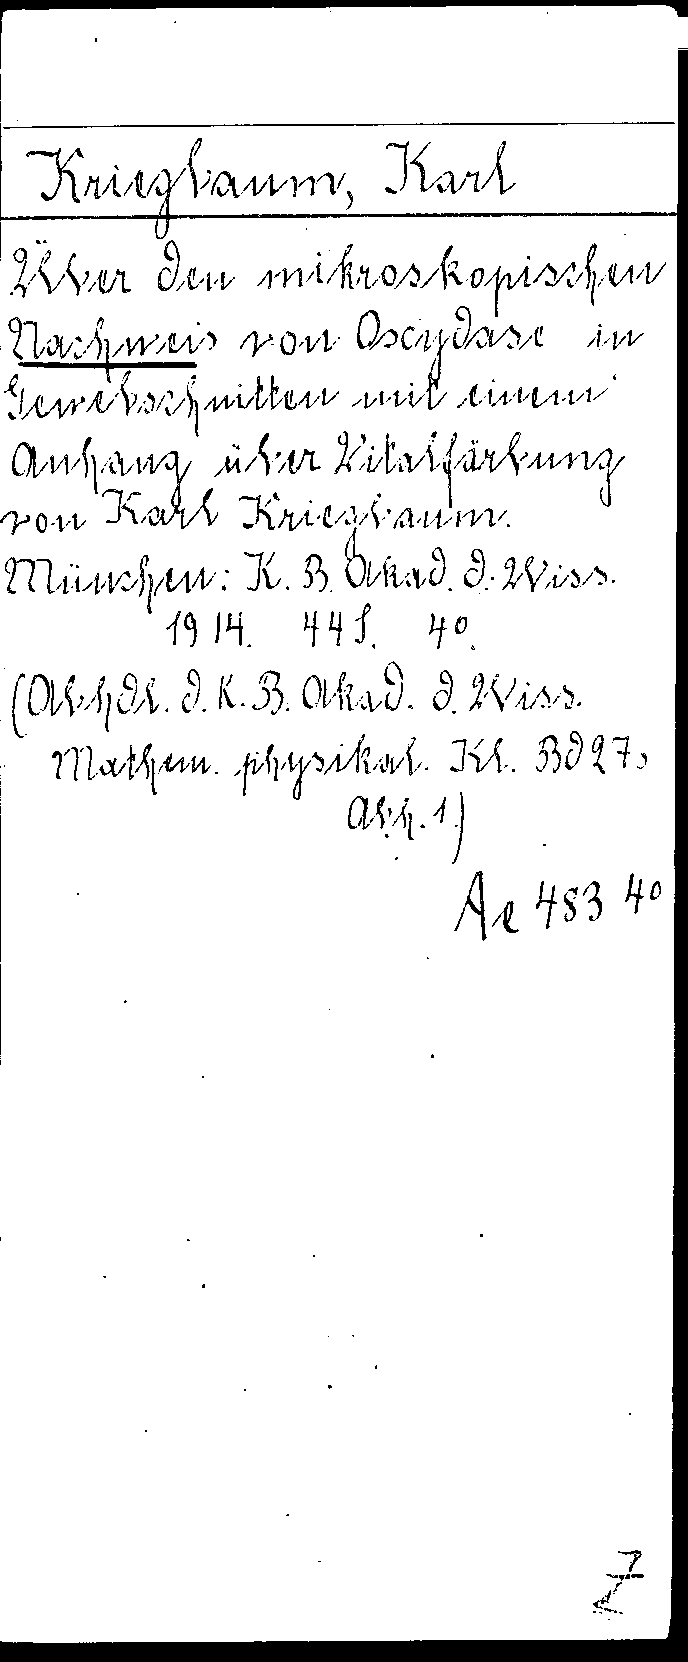 Kriegbaum, Karl
Über den mikroskopischen
Nachweis von Oxydase in
Gewebsschnitten mit einem
Anhang über Vitalfärbung
von Karl Kriegbaum.
München: K. B. Akad. d. Wiss.
1914. 44 S. 4°.
(Abhdl. d. K. B. Akad. d. Wiss.
Mathem. physikal. Kl. Bd 27,
Abh. 1)
Ae 483 4°
Z